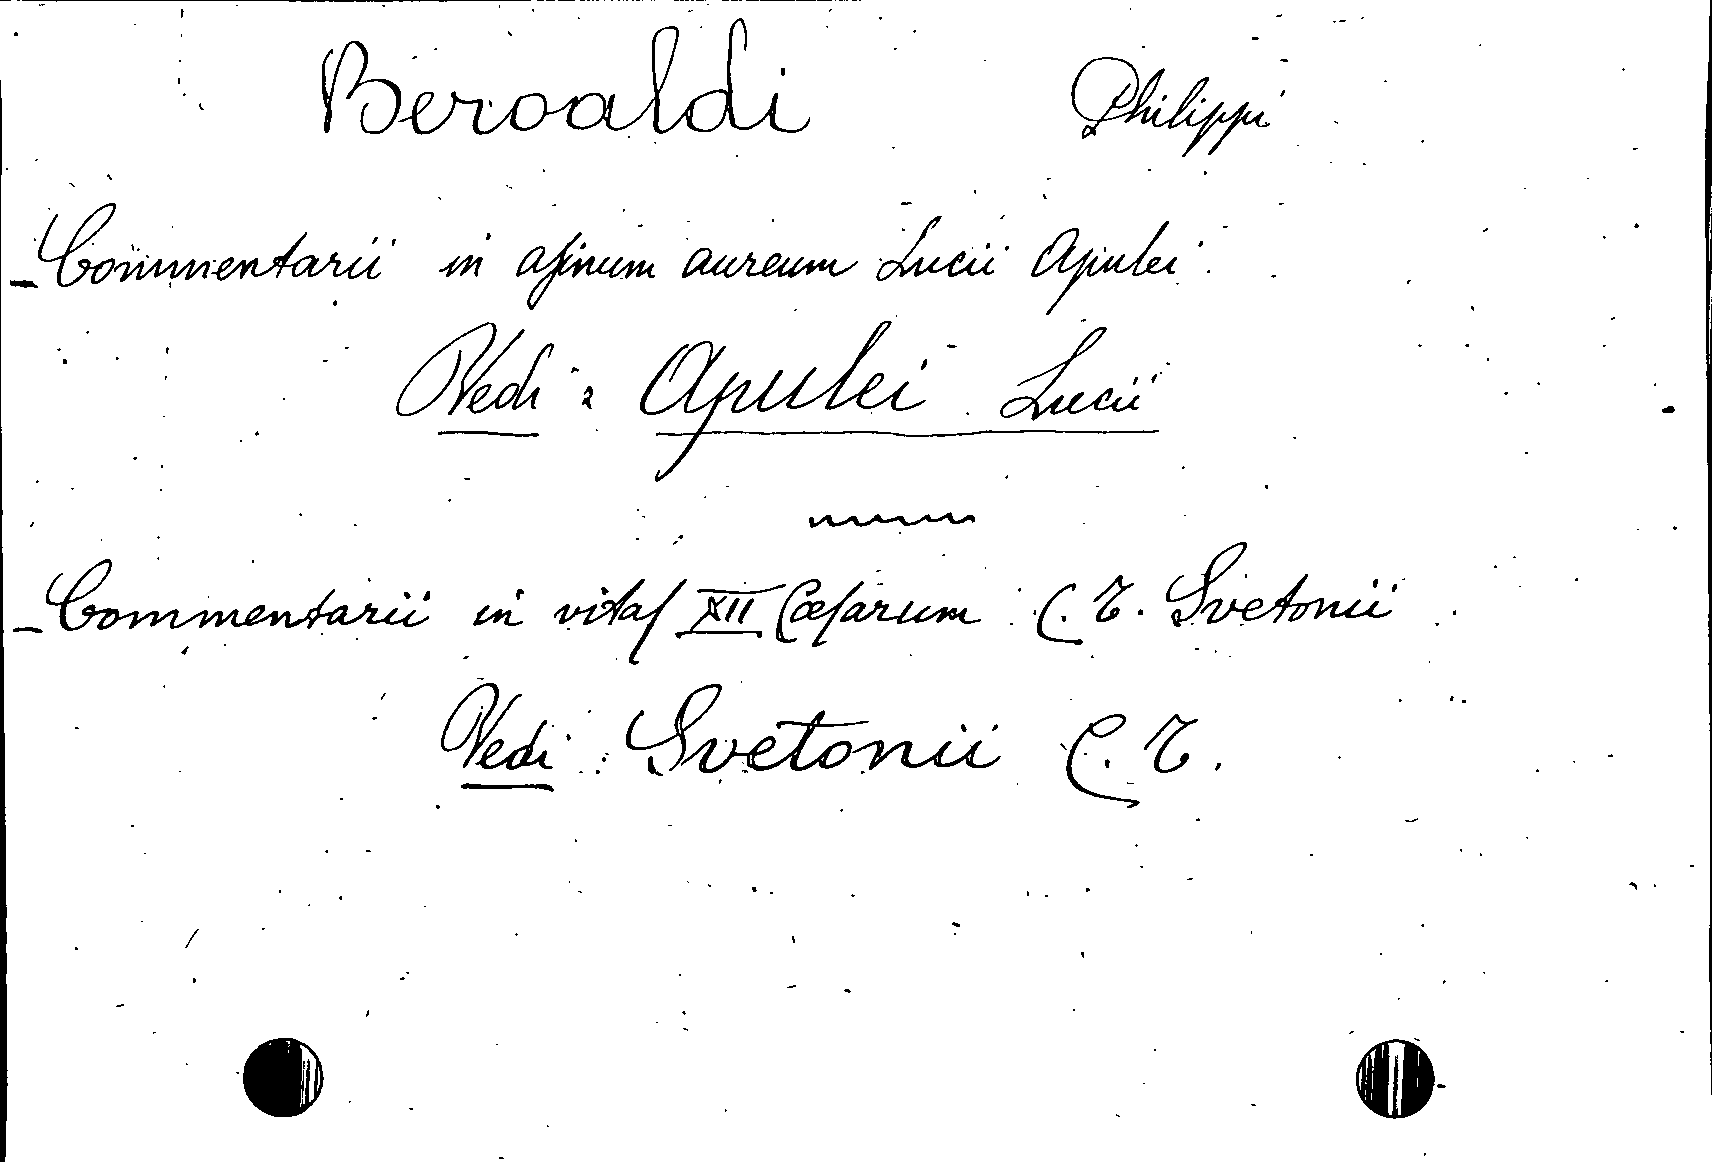 Beroaldi Philippi
- Commentarii in aſinum aureum Lucii Apulei.
Vedi: Apulei Lucii
- Commentarii in vitaſ XII Cæſarum C. T. Svetonii
Vedi: Svetonii C. T.